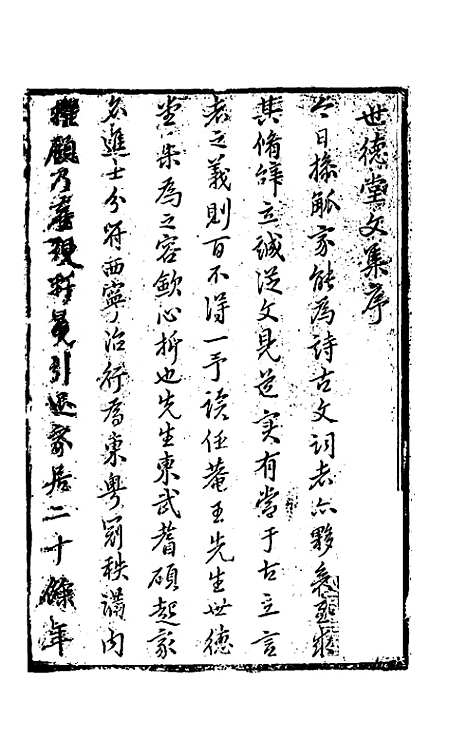 世德堂文集序
今日操觚家能為詩古文詞者亦夥矣至求
其脩辭立誠從文見道实有當于古立言
者之義則百不得一予读任菴王先生世德
堂集為之容歛心折也先生東武耆碩起家
名進士分符西寧治行為東粤冠秩満内
擢顧乃産現引退家居二十餘年